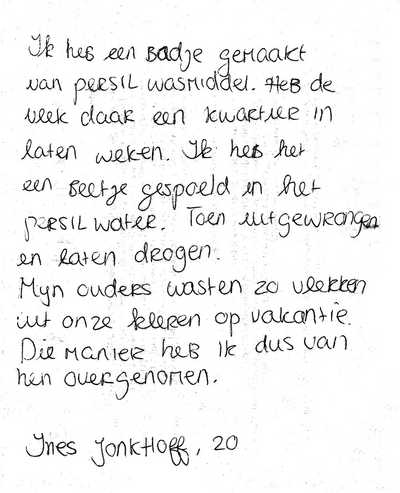 Ik heb een badje gemaakt
van persil wasmiddel. Heb de
vlek daar een kwartier in
laten weken. Ik heb het
een beetje gespoeld in het
persil water. Toen uitgewrongen
en laten drogen.
Mijn ouders wasten zo vlekken
uit onze kleren op vakantie.
Die manier heb ik dus van
hen overgenomen.
Ines Jonkhoff, 20